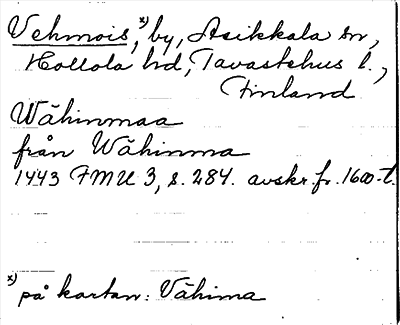 Vehmois,ˣ⁾ by, Asikkala sn,
Hollola hd, Tavastehus l.,
Finland
Wähinmaa
från Wähinma
1443 FMU 3, s. 284. avskr. fr. 1600-t.
ˣ⁾ på kartan: Vähima